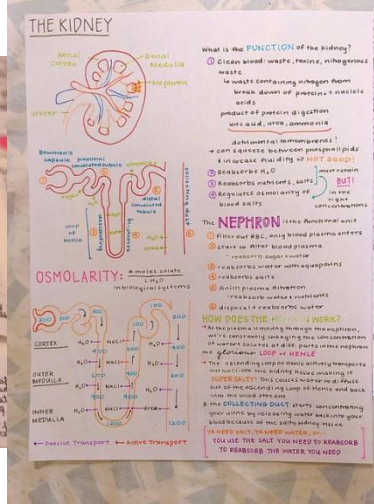 THE KIDNEY
Renal Cortex
Renal Medulla
Nephron
Ureter
Bowman's capsule
proximal convoluted tubule
distal convoluted tubule
collecting duct
Loop of henle
descending
ascending
OSMOLARITY: # moles solute
1 H₂O
in biological systems
300
300
100
CORTEX
OUTER MEDULLA
INNER MEDULLA
H₂O
NaCl
H₂O
400
600
900
1200
urea
← Passive Transport
← Active Transport
What is the FUNCTION of the kidney?
① Clean blood: waste, toxins, nitrogenous
waste
↳ waste containing nitrogen from
break down of proteins & nucleic
acids
product of protein digestion
uric acid, urea, ammonia
detrimental to membranes!
→ can squeeze between phospholipids
& increase fluidity → NOT GOOD!
② Reabsorbs H₂O
③ Reabsorbs nutrients, salts
④ Regulates osmolarity of
blood salts
must retain
BUT!
in the
right
concentrations
The NEPHRON is the functional unit
① filter out RBC, only blood plasma enters
② start to filter blood plasma
- reabsorb sugar + water
③ reabsorbs water with aquaporins
④ reabsorbs salts
⑤ finish plasma filtration
- reabsorbs water & nutrients
⑥ dispose/reabsorb water
HOW DOES THE NEPHRON WORK?
→ As the plasma is moving through the nephron,
we're constantly changing the concentration
of water/solutes at diff. parts in the nephron
the glorious LOOP OF HENLE
→ The ascending Loop of Henle actively transports
out salt into the kidney making it
SUPER SALTY! This causes water to diffuse
out of the descending Loop of Henle and
into the blood stream
→ the COLLECTING DUCT starts concentrating
your urine by releasing water back into your
blood because of the salty kidney inside
YA NEED SALT, YA NEED WATER,
YOU USE THE SALT YOU NEED TO REABSORB
TO REABSORB THE WATER YOU NEED